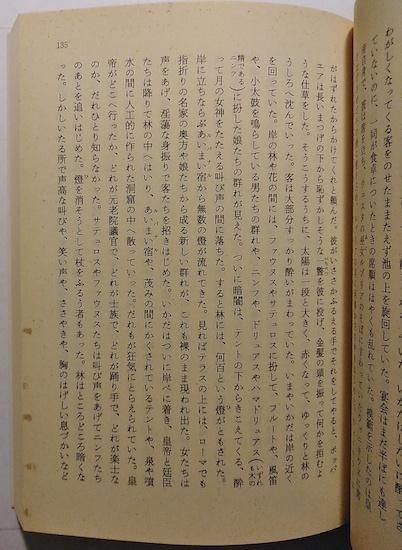 135
がはずれたからかけてくれと頼んだ。彼がいささかふるえる手でそれをしてやると、ポッパ
ニアは長いまつげの下から恥ずかしそうな一瞥を彼に投げ、金髪の頭を振って何かを拒むよ
うな仕草をした。そうこうするうちに、太陽は一段と大きく、赤くなって、ゆっくりと林の
うしろへ沈んでいった。客は大部分すっかり酔いがまわっていた。いまやいかだは岸の近く
を回っていた。岸の林や花の間には、ファウヌスやサテュロスに扮して、フルートや、風笛
や、小太鼓を鳴らしている男たちの群れや、ニンフや、ドリュアスやハマドリュアス(いずれも木の精であるニンフ)
に扮した娘たちの群れが見えた。ついに暗闇は、テントの下からきこえてくる、酔
って月の女神をたたえる叫び声の間に落ちた。すると林には、何百という燈がともされた。
岸に立ちならぶあいまい宿から無数の燈が流れてきた。見ればテラスの上には、ローマでも
指折りの名家の奥方や娘たちから成る新しい群れが、これも裸のまま現われ出た。女たちは
声をあげ、淫蕩な身振りで客たちを招きはじめた。いかだはついに岸べに着き、皇帝と廷臣
たちは降りて林の中へはいり、あいまい宿や、茂みの間にかくされているテントや、泉や噴
水の間に人工的に作られた洞窟の中へ散っていった。だれもが狂気にとらえられていた。皇
帝がどこへ行ったか、どれが元老院議官で、どれが士族で、どれが踊り手で、どれが楽士な
のか、だれひとり知らなかった。サテュロスやファウヌスたちは叫び声をあげてニンフたち
のあとを追いはじめた。燈を消そうとして杖をふるう者もあった。林はところどころ暗くな
った。しかしいたる所で声高な叫びや、笑い声や、ささやきや、胸のはげしい息づかいなど